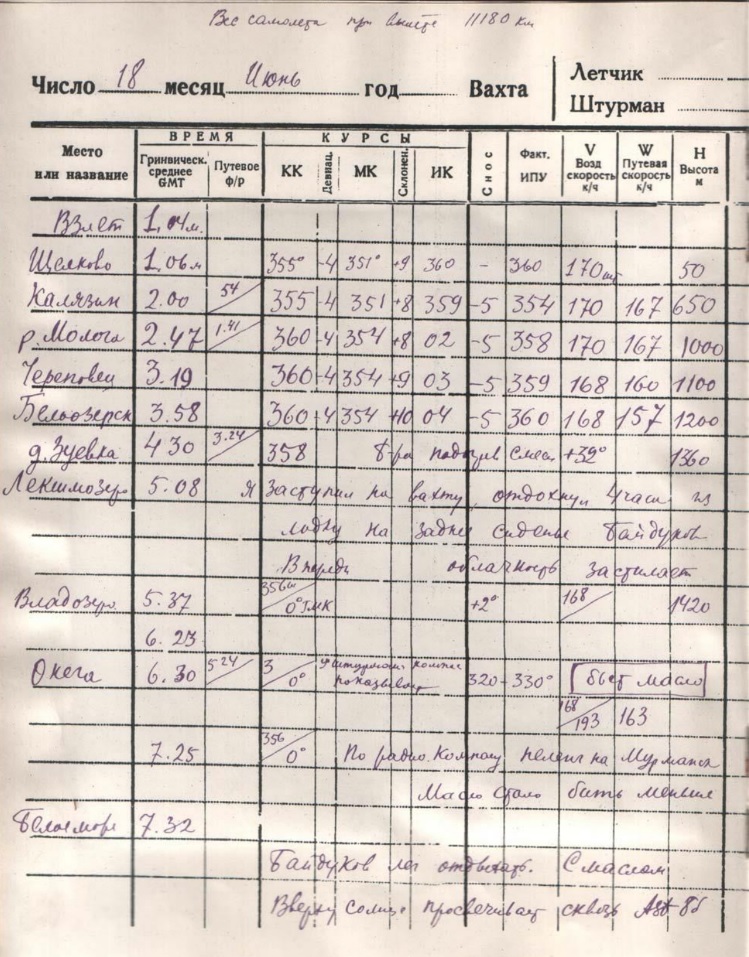 Вес самолета при вылете 11180 км
Число 18 месяц Июнь год Вахта
Летчик
Штурман
Место или название | ВРЕМЯ | КУРСЫ | Снос | Факт. ИПУ | V Возд скорость к/ч | W Путевая скорость к/ч | Н Высота м
Гринвическ. среднее GMT | Путевое ф/р | КК | Девиац. | МК | Склонен. | ИК
Взлет 1.04м.
Щелково 1.06м 355° -4 351° +9 360 - 360 170 50
Калязин 2.00 54 355 -4 351 +8 359 -5 354 170 167 650
р. Молога 2.47 1.41 360 -4 354 +8 02 -5 358 170 167 1000
Череповец 3.19 360 -4 354 +9 03 -5 359 168 160 1100
Белоозерск 3.58 360 -4 354 +10 04 -5 360 168 157 1200
д. Зуевка 4 30 3.24 358 смеси +32° 1360
Лекшмозеро 5.08 Я заступил на вахту, отдохнул 4 часа из
лодку на заднее сиденье Байдуков
Впереди облачность застилает
Владозеро 5.37 356 0° ГМК +2° 168 1420
6.23
Онега 6.30 5 24 3 0° Штурманс компас показывает 320-330° бьет масло
168 193 163
7.25 356 0° По радио. Компасу пеленг на Мурманск
Масло стало бить меньше
Белое море 7.32
Байдуков лег отдыхать. С маслом
Вверху солнце просвечивает сквозь